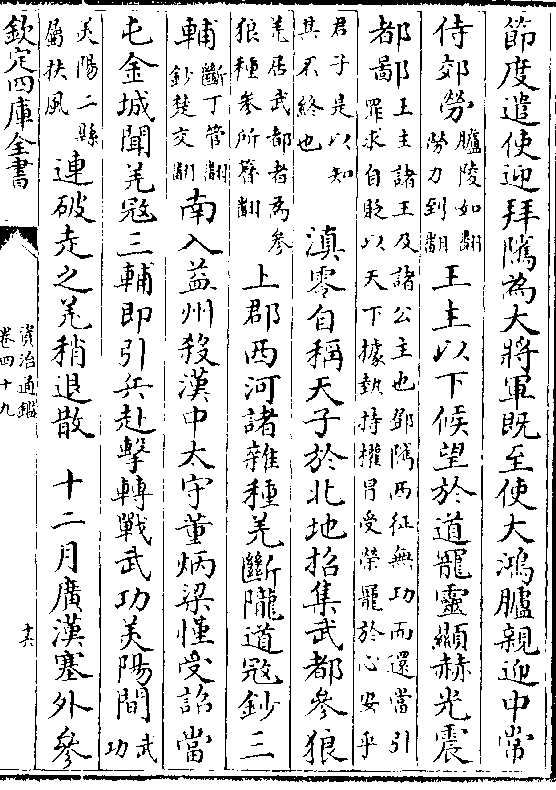 節度遣使迎拜隲為大將軍既至使大鴻臚親迎中常
侍郊勞臚陵如翻勞力到翻王主以下候望於道寵靈顯赫光震
都鄙王主諸王及諸公主也鄧隲西征無功而還當引
罪求自貶以天下據埶持權冒受榮寵於心安乎
君子是以知
其不終也滇零自稱天子於北地招集武都參狼
羌居武都者為參
狼種參所簪翻上郡西河諸雜種羌斷隴道寇鈔三
輔斷丁管翻鈔楚交翻南入益州殺漢中太守董炳梁慬受詔當
屯金城聞羌寇三輔即引兵赴擊轉戰武功美陽間武功
美陽二縣
屬扶風連破走之羌稍退散 十二月廣漢塞外參
欽定四庫全書
資治通鑑
卷四十九
十六